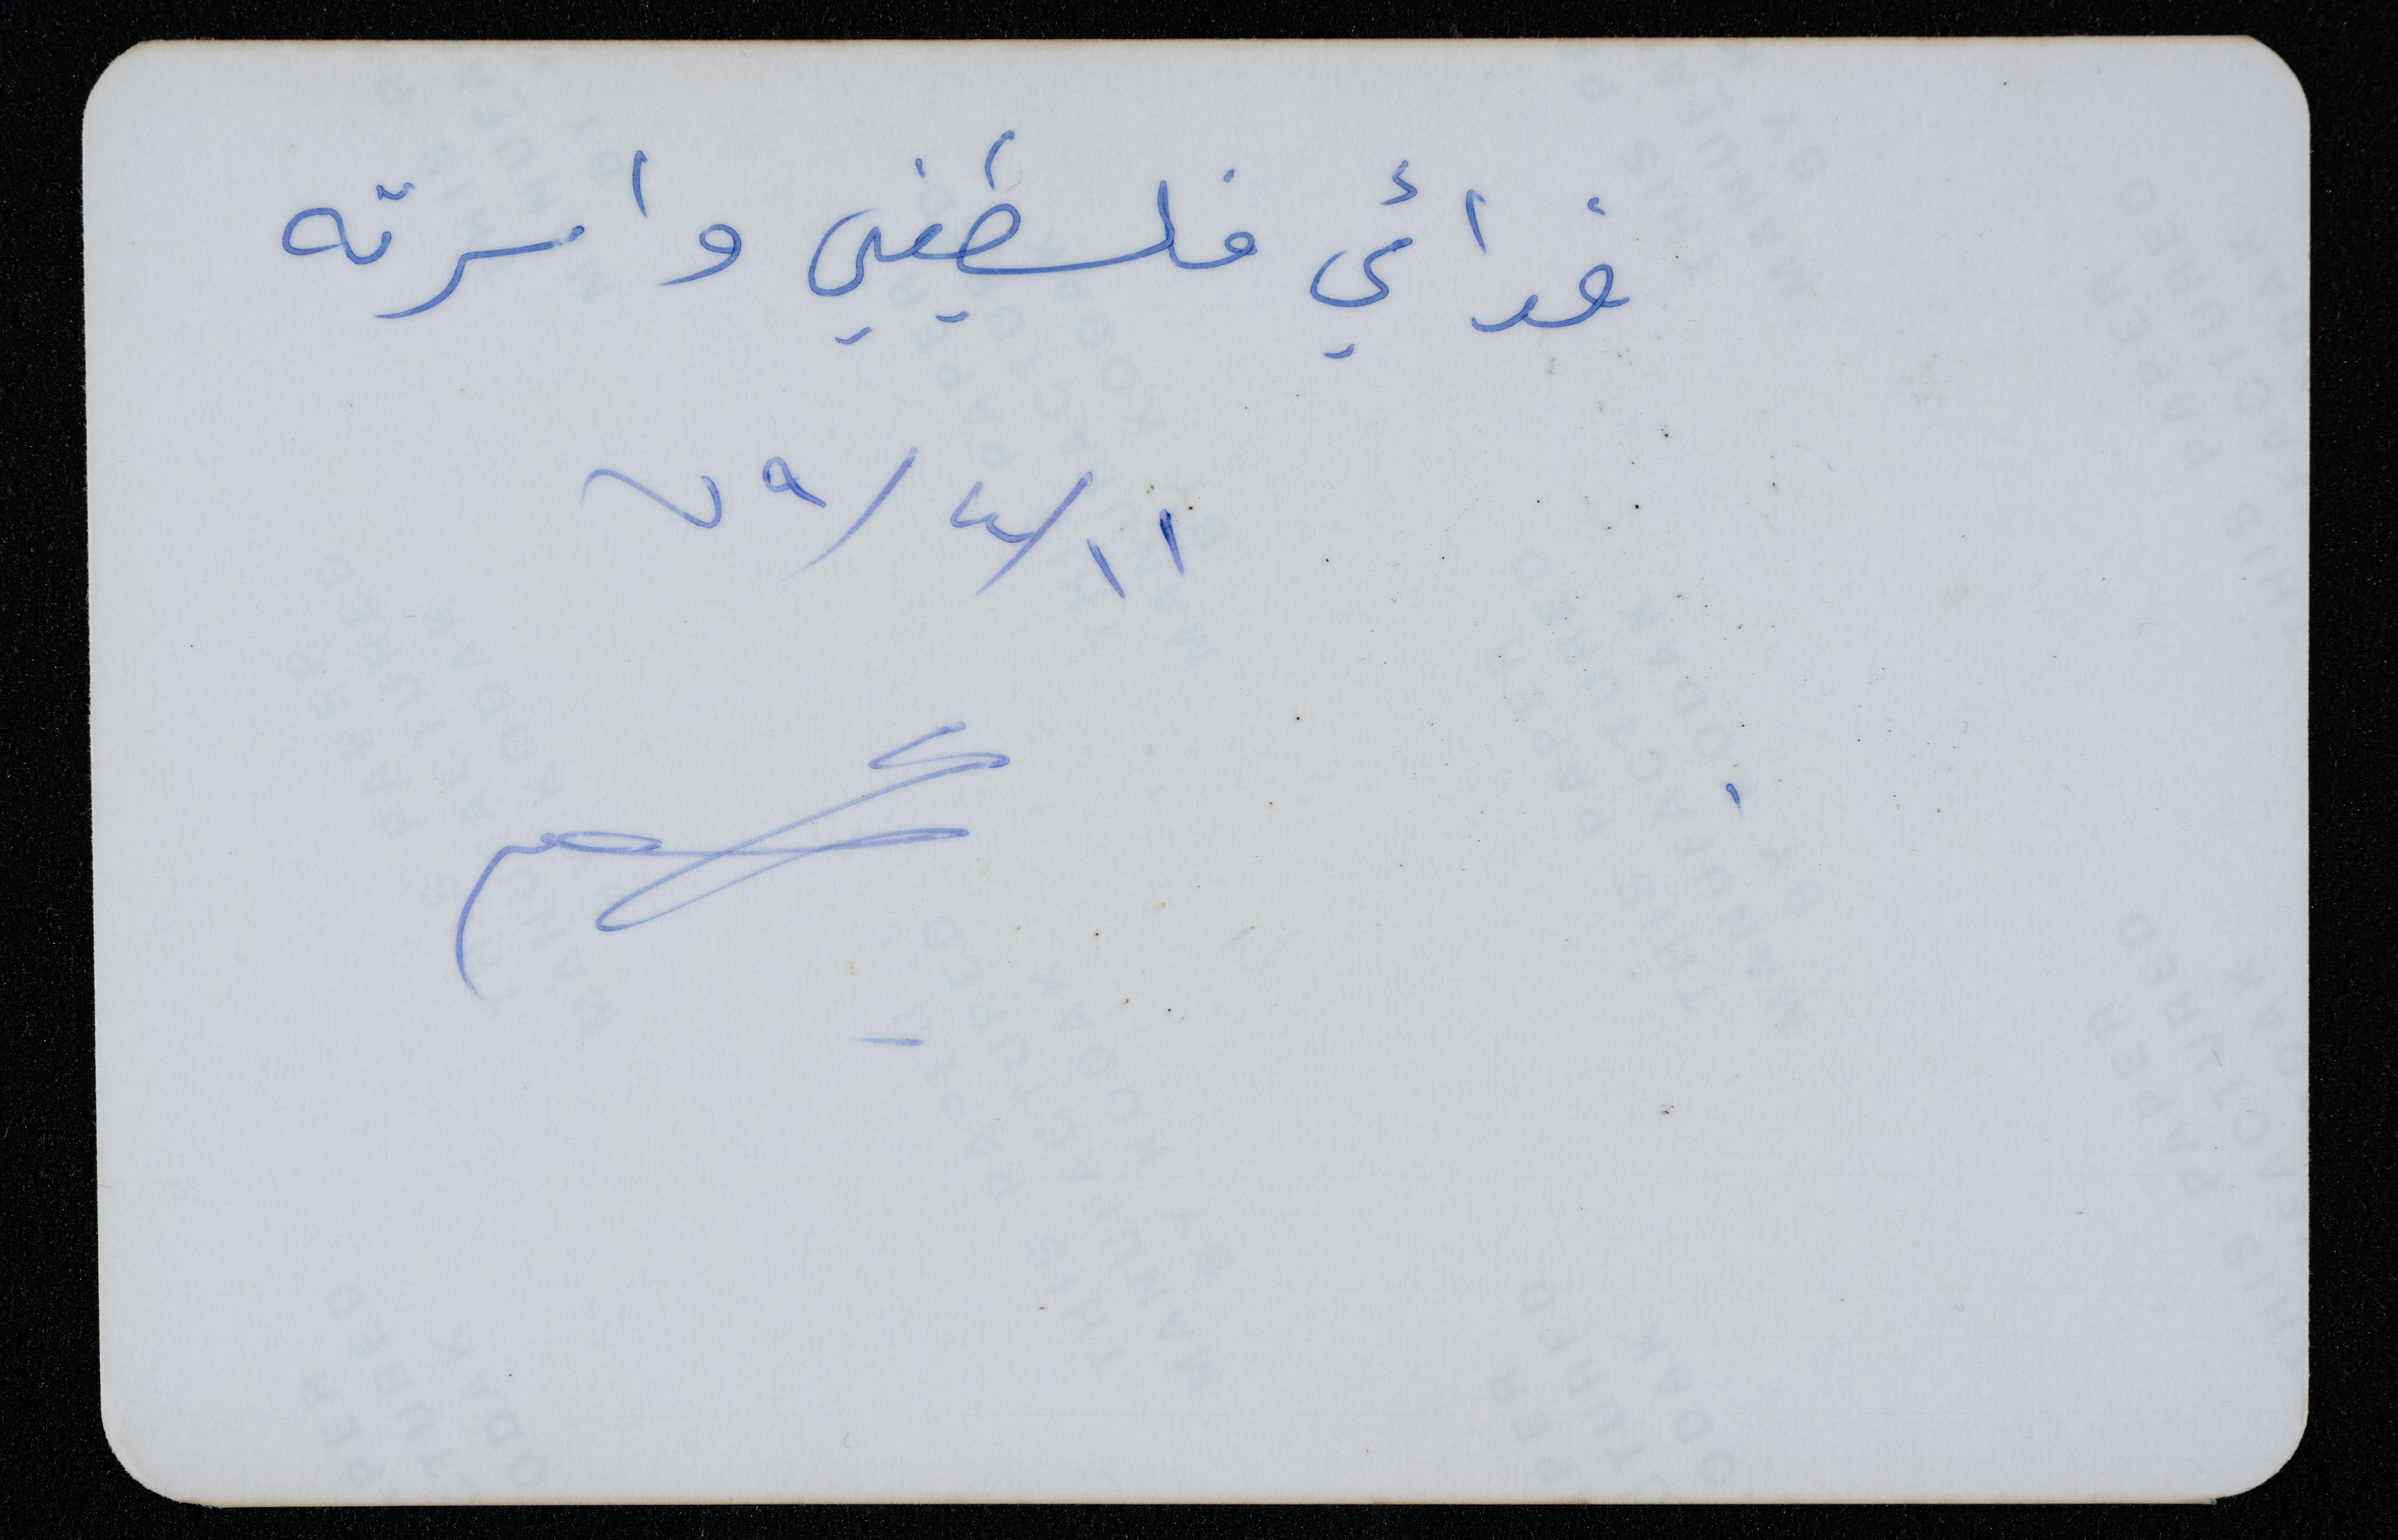 فدائي فلسطيني واسرته
١١/٤/٧٩
THIS PAPER
MANUFACTURED
BY KODAK